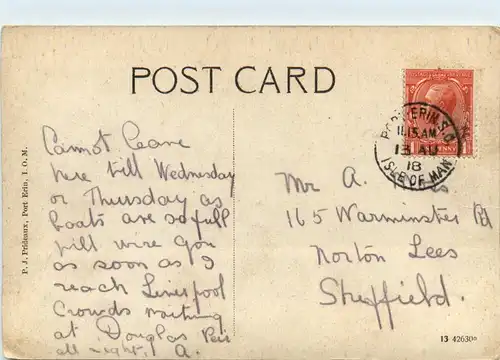 POST CARD
Cannot leave
here till Wednesday
or Thursday as
boats are so full
will wire you
as soon as I
reach Liverpool
Crowds waiting
at Douglas
all right. A.
Mr A.
165 Warminster Rd
Norton Lees
Sheffield.
PORT ERIN S.O
11.15 AM
13 AU
18
ISLE OF MAN
P. J. Prideaux, Port Erin, I. O. M.
13 42630